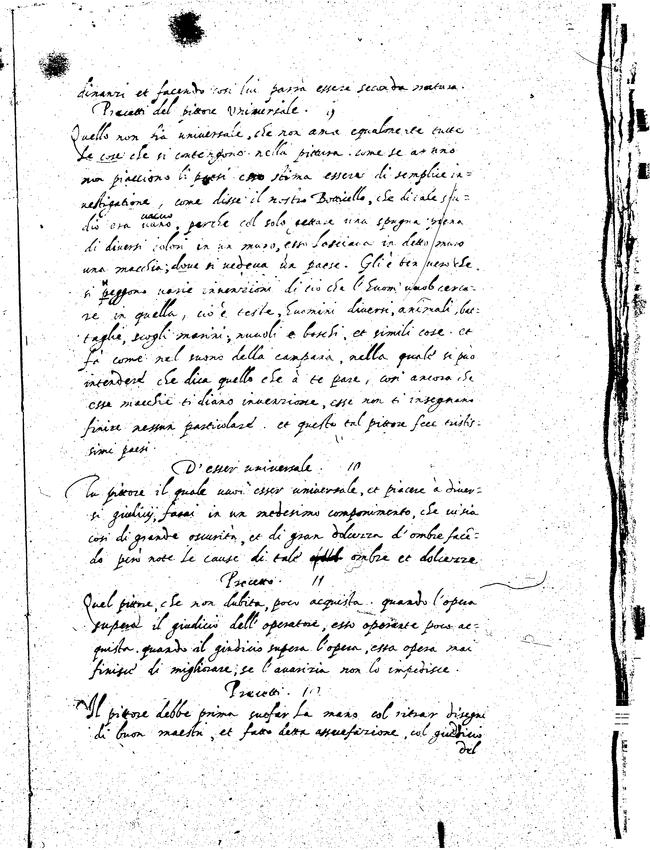 dinanzi et facendo così lui parrà essere seconda natura.
Precetti del pittore Universale. 9
Quello non fia universale, che non ama equalmente tutte
le cose che si contengono nella pittura. come se ad uno
non piacciono li paesi esso stima essere di semplice in=
vestigatione, come disse il nostro Botticello, che di tale stu=
dio era vacuo vano, perche col solo gettare una spugna piena
di diversi colori in un muro, esso lasciava in detto muro
una macchia, dove si vedeva un paese. Gli è ben vero che
si veggono varie invenzioni di ciò che l'huom vuol cerca=
re in quella, ciò è teste, huomini diversi, animali, bat=
taglie, scogli marini, nuvoli e boschi, et simili cose. et
fà come nel suono della campana, nella quale si può
intendere che dica quello che à te pare, così ancora che
esse macchie ti diano invenzione, esse non ti insegnano
finire nessun particolare. et questo tal pittore fece tristis=
simi paesi.
D'esser universale. 10
Tu pittore il quale vuoi esser universale, et piacere à diver=
si giudicij, farai in un medesimo componimento, che vi sia
cosi di grande oscurità, et di gran dolcezza d'ombre facē=
do però note le cause di tale ombre et dolcezze
Precetto. 11
Quel pittore, che non dubita, poco acquista. quando l'opera
supera il giudicio dell'operatore, esso operante poco ac=
quista. quando il giudicio supera l'opera, essa opera mai
finisce di migliorare, se l'avarizia non lo impedisce.
Precetti. 12
Il pittore debbe prima suefar la mano col ritrar disegni
di buon maestri, et fatto detta assuefazione, col giudicio
del